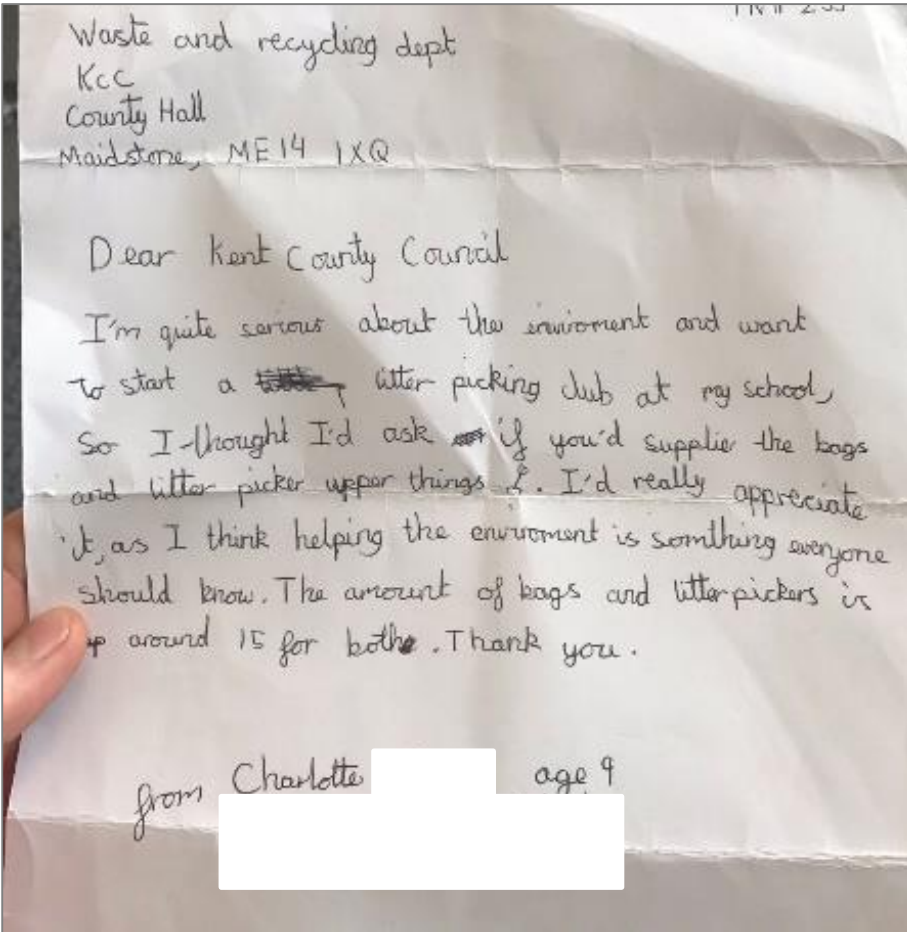 Waste and recycling dept
KCC
County Hall
Maidstone, ME14 1XQ
Dear Kent County Council
I'm quite serious about the inviroment and want
to start a litter picking club at my school,
So I thought I'd ask if you'd supplie the bags
and litter picker upper things. I'd really appreciate
it, as I think helping the enviroment is somthing everyone
should know. The amount of bags and litterpickers is
around 15 for both. Thank you.
from Charlotte age 9